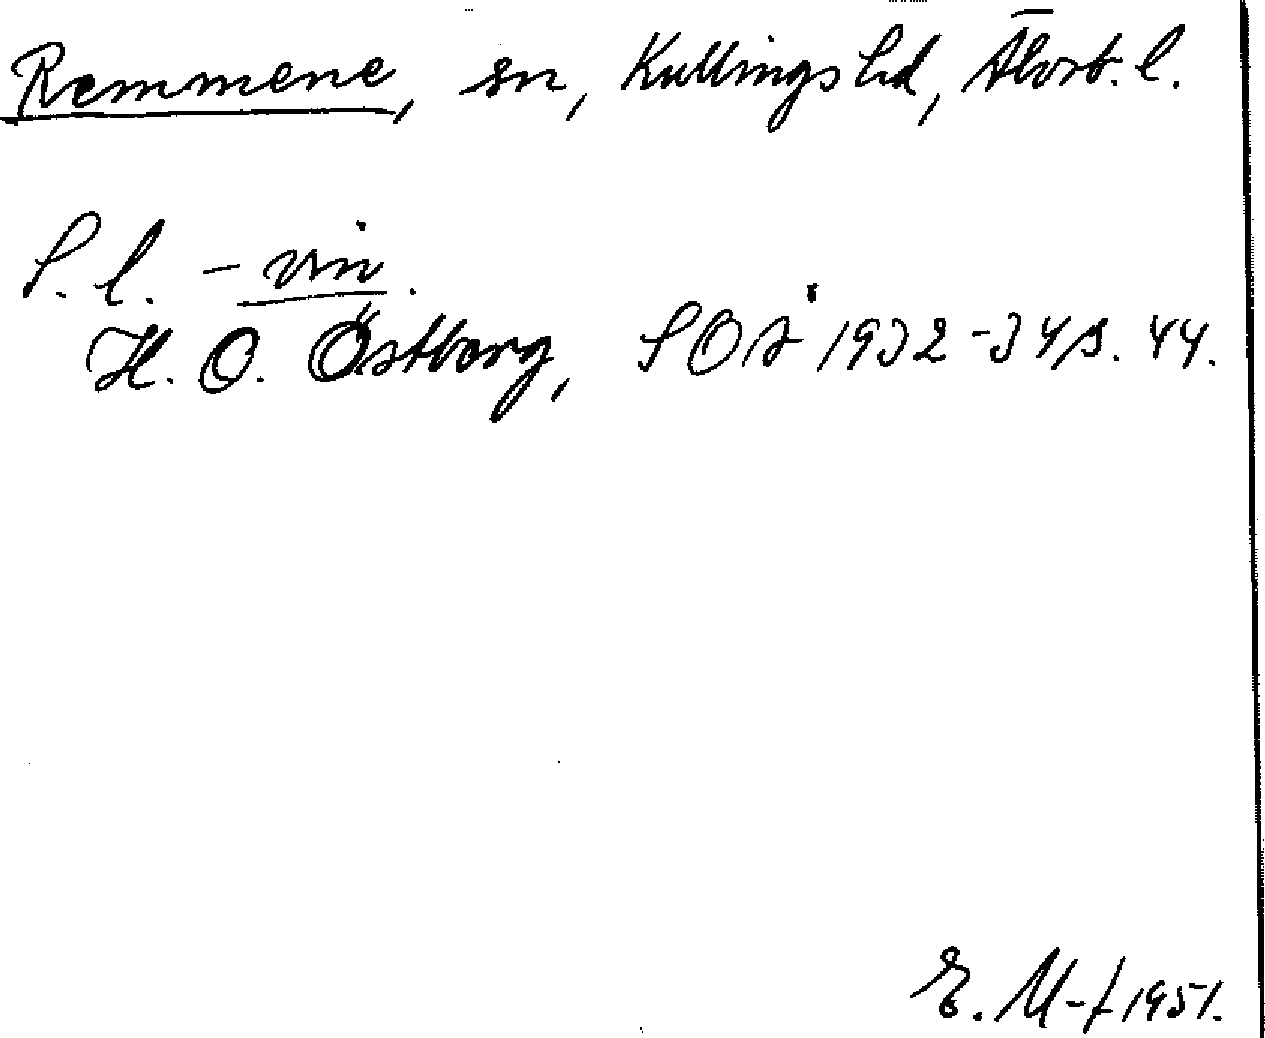 Remmene, sn, Kullings hd, Älvsb. l.
S. l. - vin.
H. O. Östberg, SOÅ 1932-34, s. 44.
E. M-f 1951.